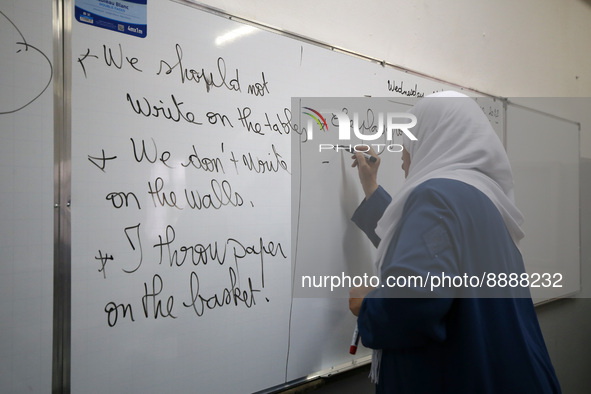 * We should not
Write on the tables
* We don't Write
on the walls.
* I throw paper
on the basket!
Wednesday
Tableau Blanc
NUR
PHOTO
www.nurphoto.com - 888888232